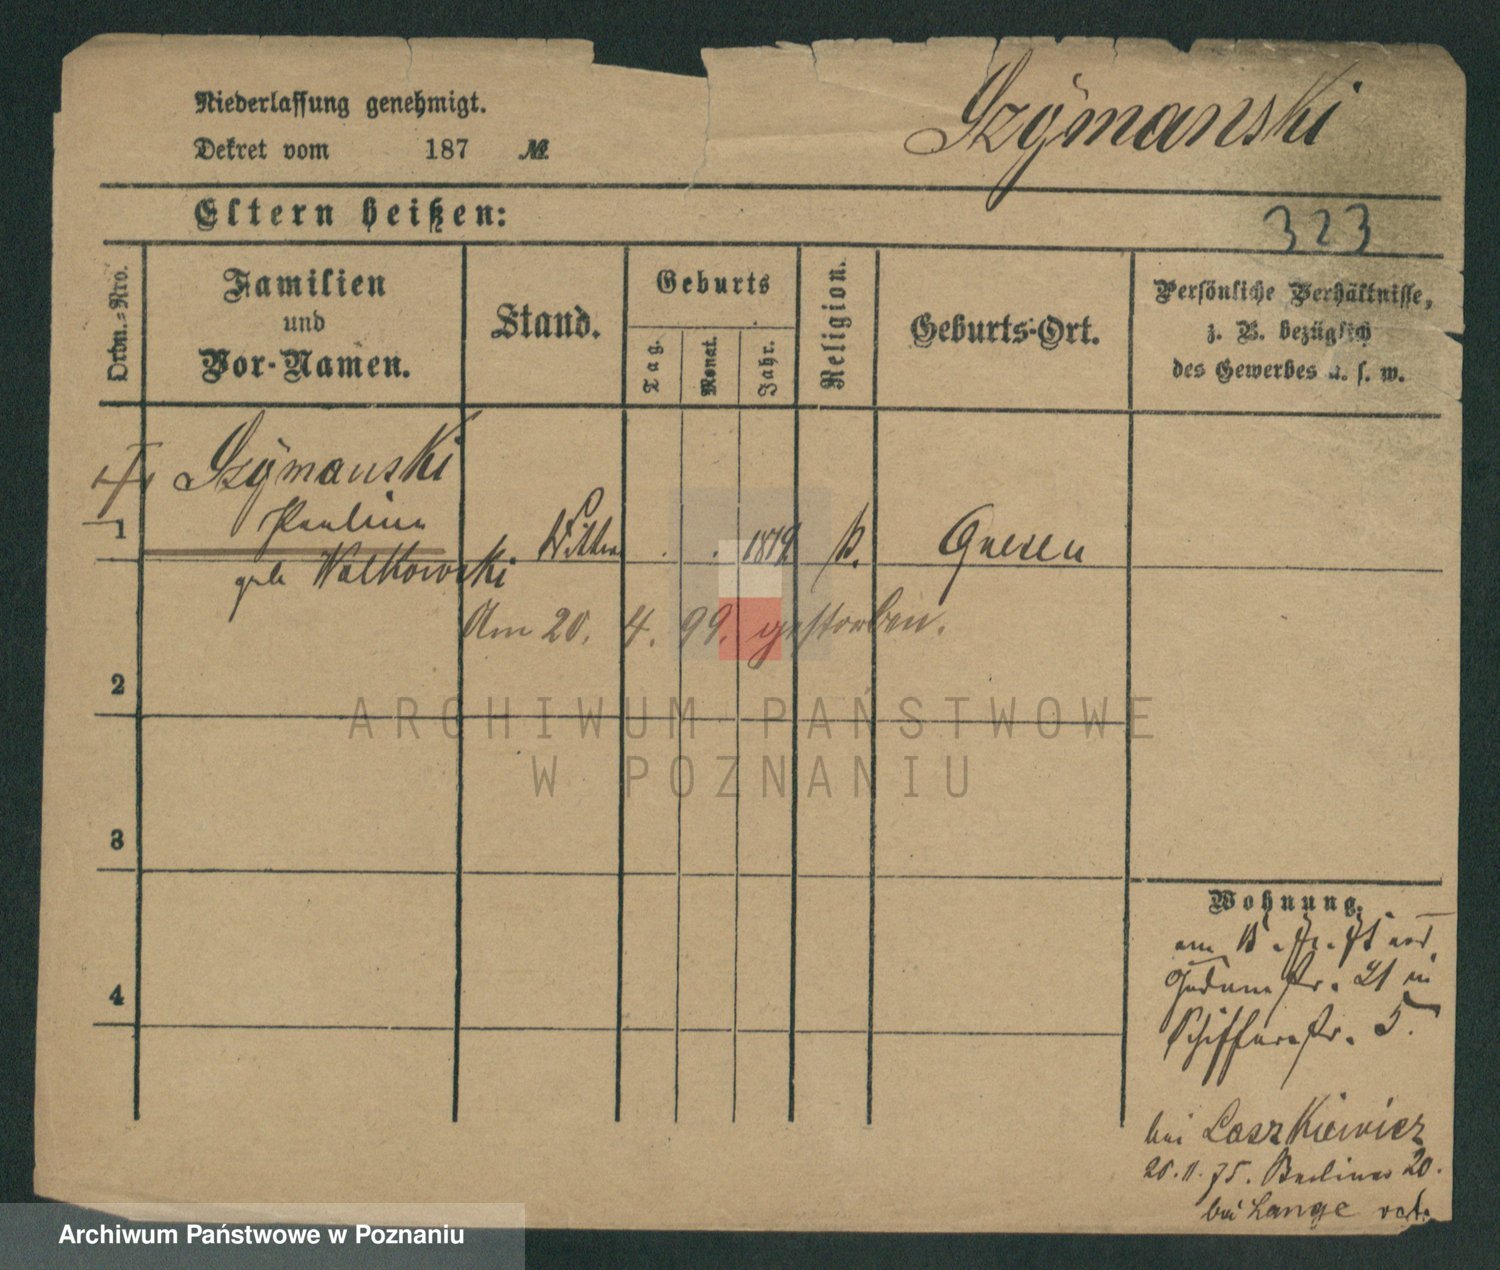 Niederlassung genehmigt.
Dekret vom 187 №
Szÿmanski
Eltern heißen:
323
Ordn.-Nro.
Familien
und
Vor-Namen.
Stand.
Geburts
Tag.
Monat.
Jahr.
Religion.
Geburts-Ort.
Persönliche Verhältnisse,
z. B. bezüglich
des Gewerbes u. s. w.
Szÿmanski
1 Paulina 1819 Gnesen
geb Walkowski
Am 20. 4. 99. gestorben.
2
3
4
Wohnung.
21 in
Schifferstr. 5.
bei Laszkiewicz
75. Berliner 20.
bei Lange
ARCHIWUM PAŃSTWOWE
W POZNANIU
Archiwum Państwowe w Poznaniu